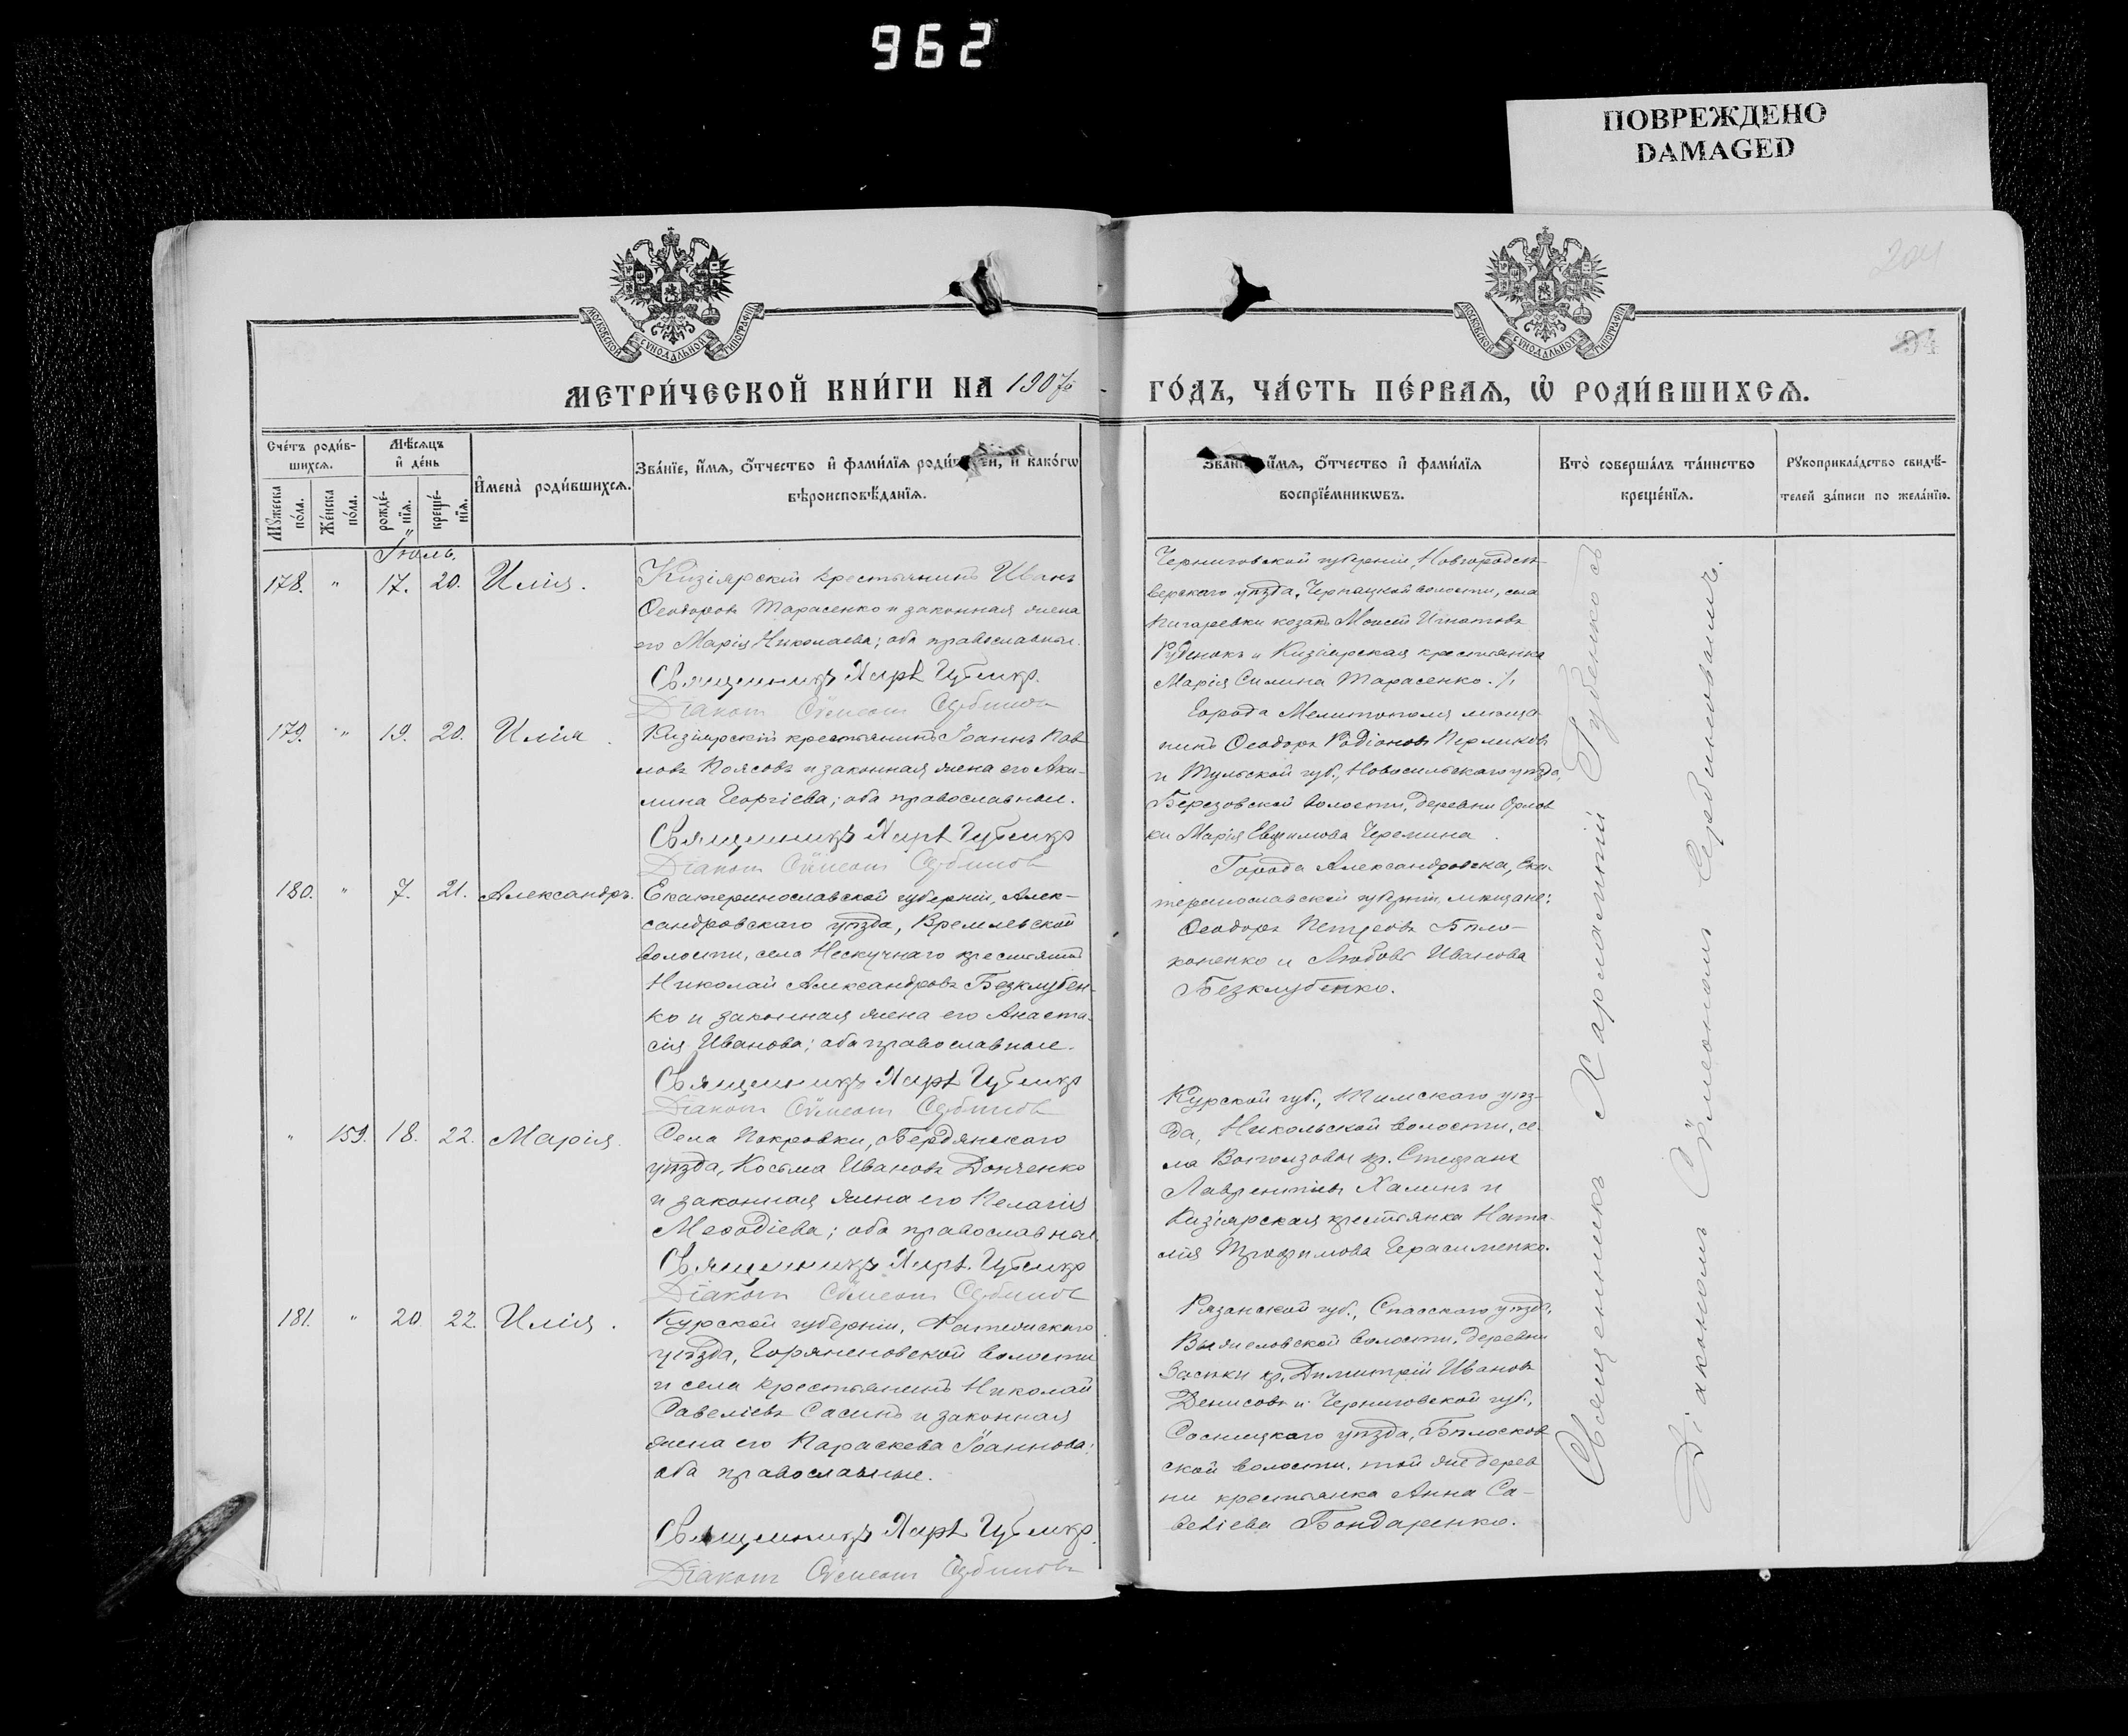 962
ПОВРЕЖДЕНО
DAMAGED
204
МОСКОВСКОЙ СѴНОДАЛЬНОЙ ТИПОГРАФІИ
МОСКОВСКОЙ СѴНОДАЛЬНОЙ ТИПОГРАФІИ
МЕТРИ́ЧЕСКОЙ КНИ́ГИ НА 1907й
ГО́ДЪ, ЧА́СТЬ ПЕ́РВАѦ, Ѡ҆ РОДИ́ВШИХСѦ.
Сче́тъ роди́в-
шихсѧ.
Мꙋ́жеска по́ла.
Же́нска по́ла.
Мѣ́сѧцъ
и҆ де́нь
рожде́-
нїѧ.
креще́-
нїѧ.
И҆мена̀ роди́вшихсѧ.
Зва́нїе, и҆́мѧ, ѻ҆́тчество и҆ фами́лїѧ роди́телей, и҆ како́гѡ
вѣроисповѣ́данїѧ.
Зва́нїе, и҆́мѧ, ѻ҆́тчество и҆ фами́лїѧ
воспрїе́мникѡвъ.
Кто̀ соверша́лъ та́инство
креще́нїѧ.
Рꙋкоприкла́дство свидѣ́-
телей за́писи по жела́нїю.
Іюль.
178. " 17. 20. Илія.
Кизіярскій крестьянинъ Иванъ
Ѳеодоровъ Тарасенко и законная жена
его Марія Николаева; оба православные.
Священникъ Харл. Губенко
Діаконъ Сѵмеонъ Сербиновъ
Черниговской губерніи, Новгородсѣ-
верскаго уѣзда, волости, села
Пигаревки козакъ Моисей Игнатовъ
Руденокъ и Кизіярская крестьянка
Марія Силина Тарасенко.
179. " 19. 20. Илія.
Кизіярскій крестьянинъ Іоаннъ Пав
ловъ Поясовъ и законная жена его Аки-
лина Георгіева; оба православные.
Священникъ Харл. Губенко
Діаконъ Сѵмеонъ Сербиновъ
Города Мелитополя мѣща
нинъ Ѳеодоръ Родіоновъ Перликовъ
и Тульской губ., Новосильскаго уѣзда,
Березовской волости, деревни Орлов
ки Марія Евфимова Черемина.
180. " 7. 21. Александръ.
Екатеринославской губерніи, Алек-
сандровскаго уѣзда, Времьевской
волости, села Нескучнаго крестьянинъ
Николай Александровъ Безклубен-
ко и законная жена его Анаста-
сія Иванова; оба православные.
Священникъ Харл. Губенко
Діаконъ Сѵмеонъ Сербиновъ
Города Александровска, Ека-
теринославской губерніи, мѣщане:
Ѳеодоръ Петровъ Бѣло-
коненко и Любовь Иванова
Безклубенко.
" 159. 18. 22. Марія.
Села Покровки, Бердянскаго
уѣзда, Косьма Ивановъ Донченко
и законная жена его Пелагія
Меѳодіева; оба православные.
Священникъ Харл. Губенко
Діаконъ Сѵмеонъ Сербиновъ
Курской губ., Тимскаго уѣз-
да, Никольской волости, се-
ла кр. Стефанъ
Лаврентіевъ Халинъ и
Кизіярская крестьянка Ната-
лія Трофимова Герасименко.
181. " 20. 22. Илія.
Курской губерніи,
уѣзда, волости
и села крестьянинъ Николай
Савеліевъ Сасинъ и законная
жена его Параскева Іоаннова;
оба православные.
Священникъ Харл. Губенко
Діаконъ Сѵмеонъ Сербиновъ
Рязанской губ., Спасскаго уѣзда,
волости, деревни
Засѣки кр. Димитрій Ивановъ
Денисовъ и Черниговской губ.,
Сосницкаго уѣзда, Бѣлосков
ской волости, той же дерев
ни крестьянка Анна Са-
веліева Бондаренко.
Священникъ Харлампій Губенко съ
Діакономъ Сѵмеономъ Сербиновымъ.